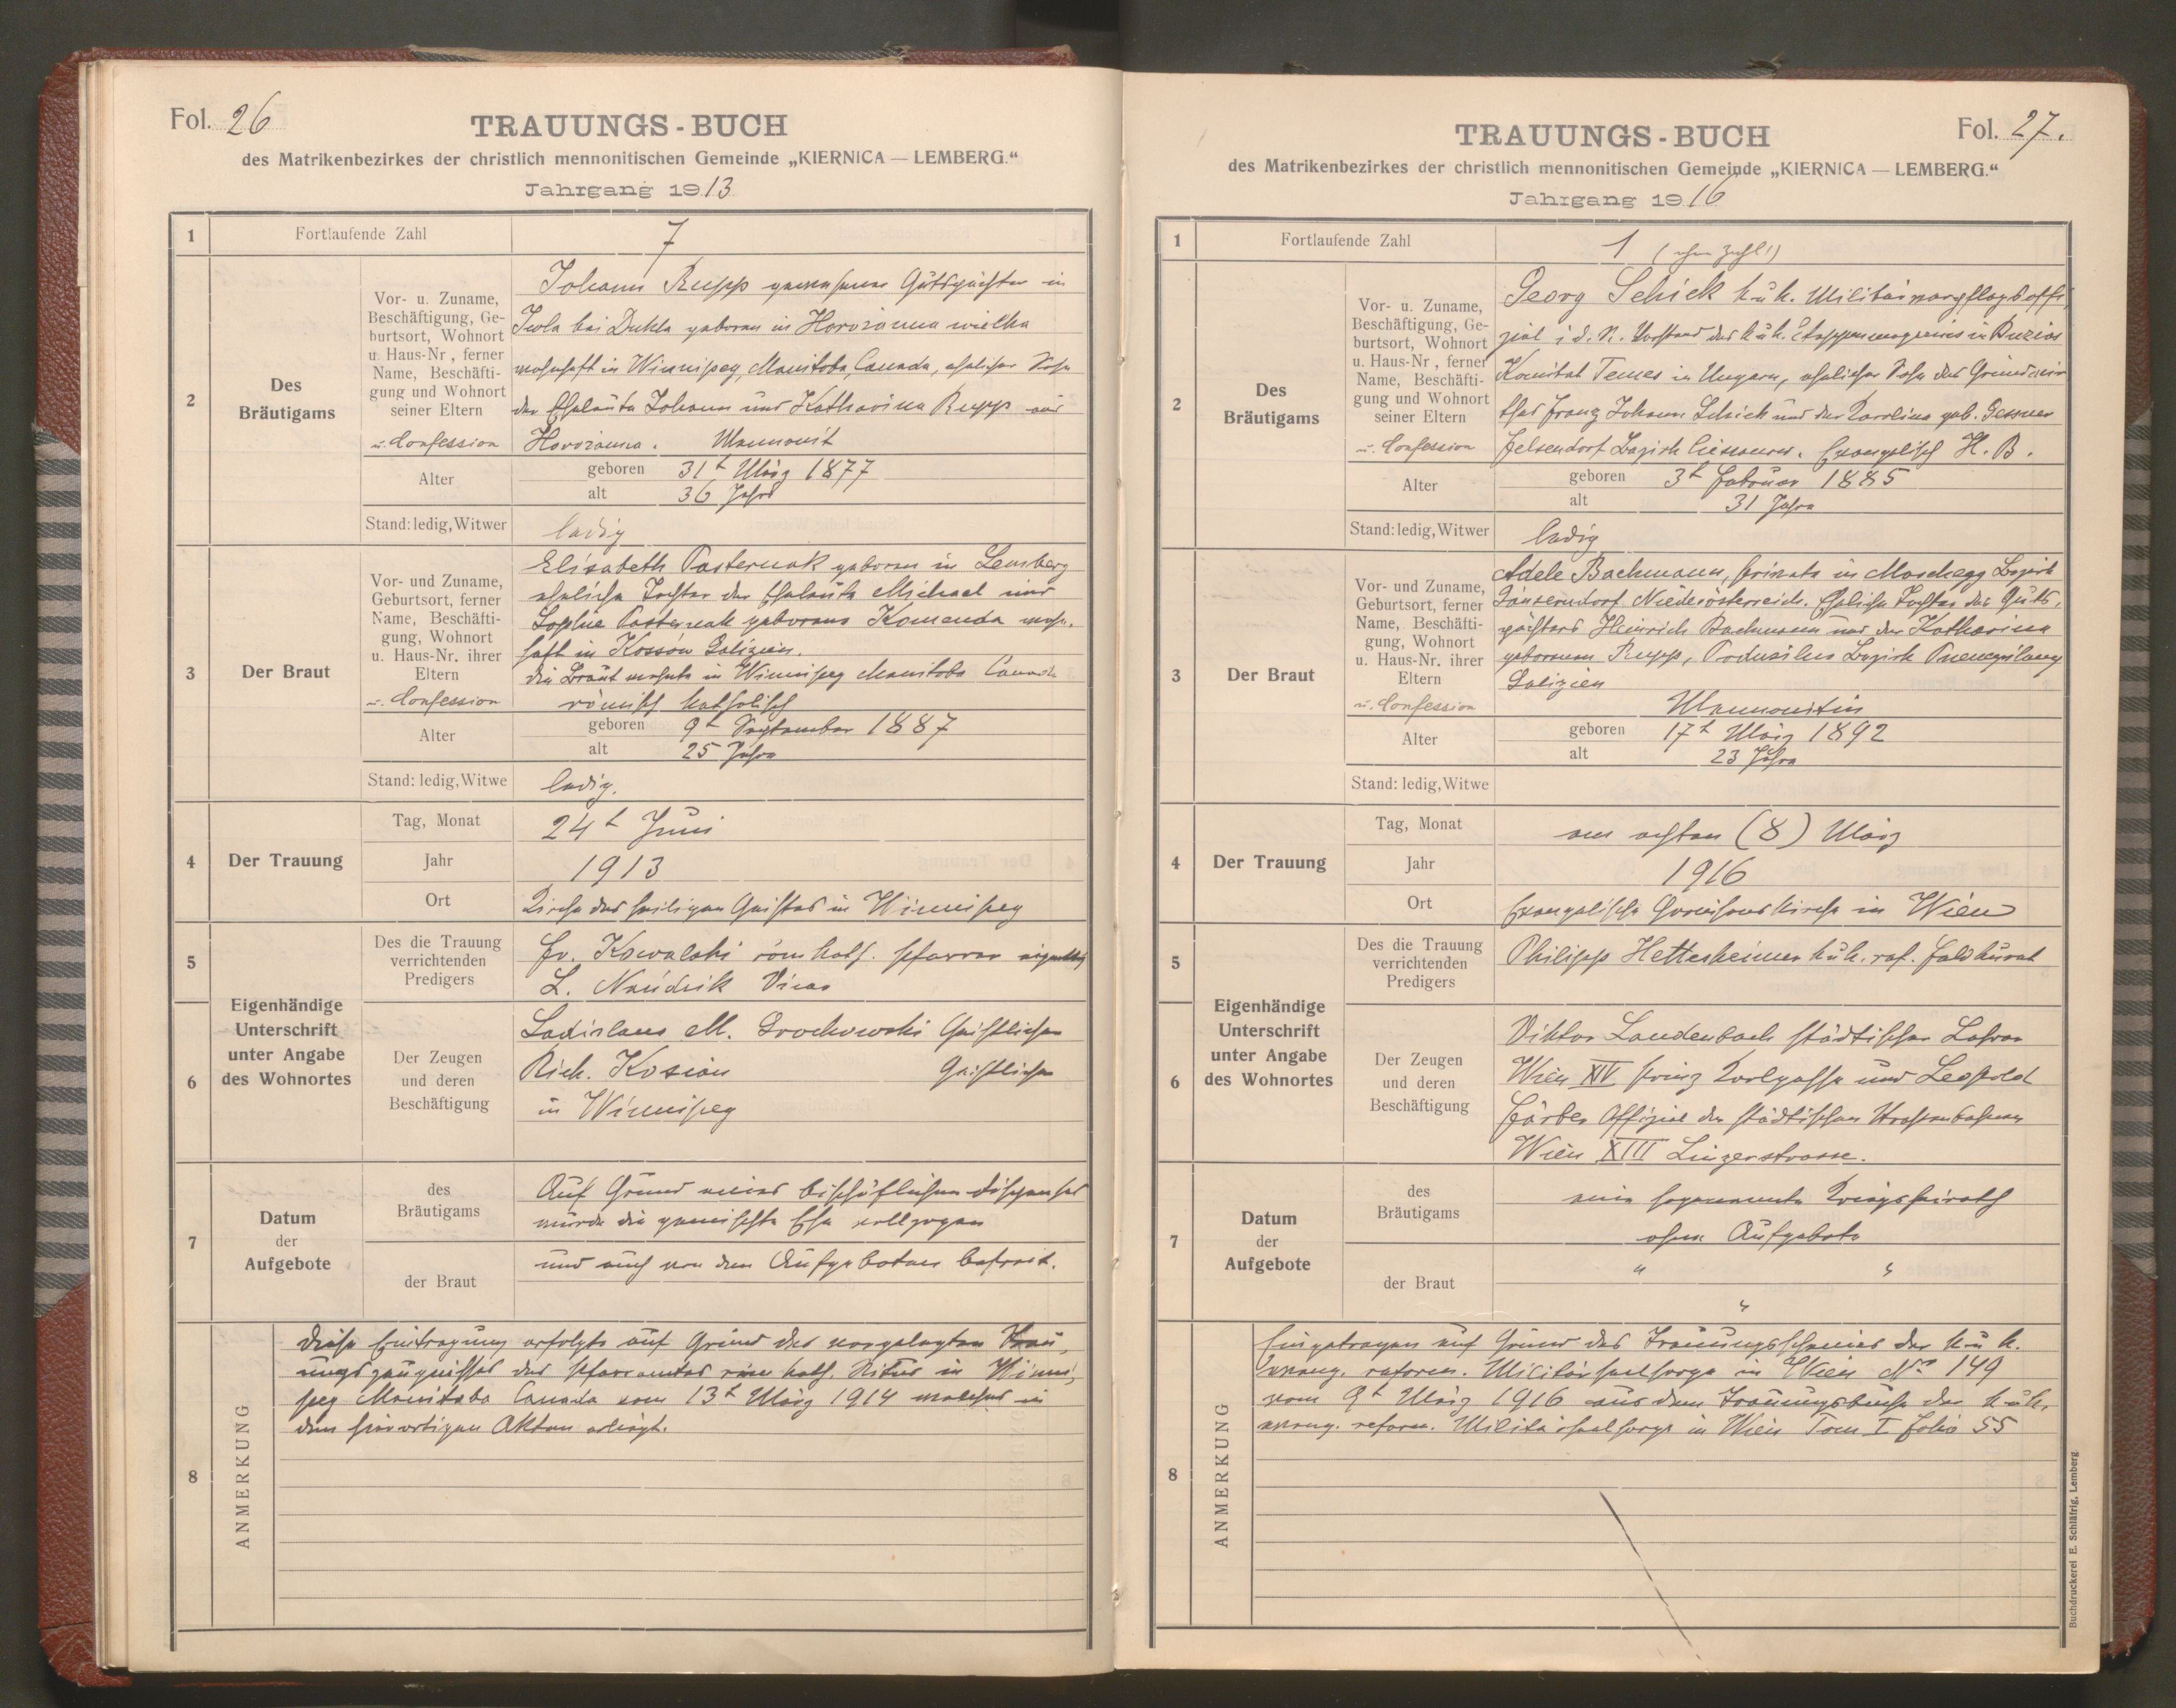 Fol. 26
TRAUUNGS-BUCH
des Matrikenbezirkes der christlich mennonitischen Gemeinde „KIERNICA — LEMBERG.“
Jahrgang 1913
1 Fortlaufende Zahl 7
2 Des Bräutigams
Vor- u. Zuname, Beschäftigung, Geburtsort, Wohnort u. Haus-Nr, ferner Name, Beschäftigung und Wohnort seiner Eltern
u. Confession
Johann Rupp gewesener Gutspächter in
Iwla bei Dukla geboren in Horozanna wielka
wohnhaft in Winnipeg, Manitoba, Canada, ehelicher Sohn
der Eheleute Johann und Katharina Rupp aus
Horozanna. Mennonit
Alter
geboren 31t März 1877
alt 36 Jahre
Stand: ledig, Witwer ledig
3 Der Braut
Vor- und Zuname, Geburtsort, ferner Name, Beschäftigung, Wohnort u. Haus-Nr. ihrer Eltern
u. Confession
Elisabeth Pasternak geboren in Lemberg
eheliche Tochter der Eheleute Michael und
Sophie Pasternak geborene Komenda wohn-
haft in Kossów Galizien.
die Braut wohnte in Winnipeg Manitoba Canada
römisch katholisch
Alter
geboren 9t September 1887
alt 25 Jahre
Stand: ledig, Witwe ledig.
4 Der Trauung
Tag, Monat 24t Juni
Jahr 1913
Ort Kirche des heiligen Geistes in Winnipeg
Eigenhändige Unterschrift unter Angabe des Wohnortes
5 Des die Trauung verrichtenden Predigers
Fr. Kowalski röm kath. Pfarrer
L. Nandzik Vicar
6 Der Zeugen und deren Beschäftigung
Ladislaus M. Drochowski Geistlicher
Rich. Kosian Geistlicher
in Winnipeg
7 Datum der Aufgebote
des Bräutigams
Auf Grund eines bischöflichen Dispenses
wurde die gemischte Ehe vollzogen
der Braut
und auch von den Aufgeboten befreit.
8 ANMERKUNG
Diese Eintragung erfolgte auf Grund des vorgelegten Trau-
ungszeugnisses des Pfarramtes röm kath. Ritus in Winni-
peg Manitoba Canada vom 13t März 1914 welches in
den hierortigen Akten erliegt.
Fol. 27.
TRAUUNGS-BUCH
des Matrikenbezirkes der christlich mennonitischen Gemeinde „KIERNICA — LEMBERG.“
Jahrgang 1916
1 Fortlaufende Zahl 1 (ohne Zahl!)
2 Des Bräutigams
Vor- u. Zuname, Beschäftigung, Geburtsort, Wohnort u. Haus-Nr, ferner Name, Beschäftigung und Wohnort seiner Eltern
u. Confession
Georg Schick k u k. Militärverpflegsoffi-
zial i. d. R. Vorstand des k u k. Etappenmagazins in Buzias
Komitat Temes in Ungarn, ehelicher Sohn des Grundwir
thes Franz Johann Schick und der Karolina geb. Gessner
Felsendorf Bezirk Cieszanow. Evangelisch H. B.
Alter
geboren 3t Februar 1885
alt 31 Jahre
Stand: ledig, Witwer ledig
3 Der Braut
Vor- und Zuname, Geburtsort, ferner Name, Beschäftigung, Wohnort u. Haus-Nr. ihrer Eltern
u. Confession
Adele Bachmann, Private in Marchegg Bezirk
Gänserndorf Niederösterreich. Eheliche Tochter des Guts-
pächters Heinrich Bachmann und der Katharina
geborenen Rupp, Podusilna Bezirk Przemyslany
Galizien
Mennonitin
Alter
geboren 17t März 1892
alt 23 Jahre
Stand: ledig, Witwe
4 Der Trauung
Tag, Monat am achten (8) März
Jahr 1916
Ort Evangelische Garnisonskirche in Wien
Eigenhändige Unterschrift unter Angabe des Wohnortes
5 Des die Trauung verrichtenden Predigers
Philipp Hettesheimer k u k. ref. Feldkurat
6 Der Zeugen und deren Beschäftigung
Viktor Landenbach städtischer Lehrer
Wien XIV Prinz Karlgasse und Leopold
Färber Offizial der städtischen Strassenbahnen
Wien XIII Linzerstrasse.
7 Datum der Aufgebote
des Bräutigams
eine sogenannte Kriegsheirath
ohne Aufgebote
der Braut
" "
"
8 ANMERKUNG
Eingetragen auf Grund des Trauungsscheines der k u k.
evang. reform. Militärseelsorge in Wien No 149
vom 9t März 1916 aus dem Trauungsbuche der k u k.
evang. reform. Militärseelsorge in Wien Tom I Folio 55
Buchdruckerei E. Schläfrig, Lemberg